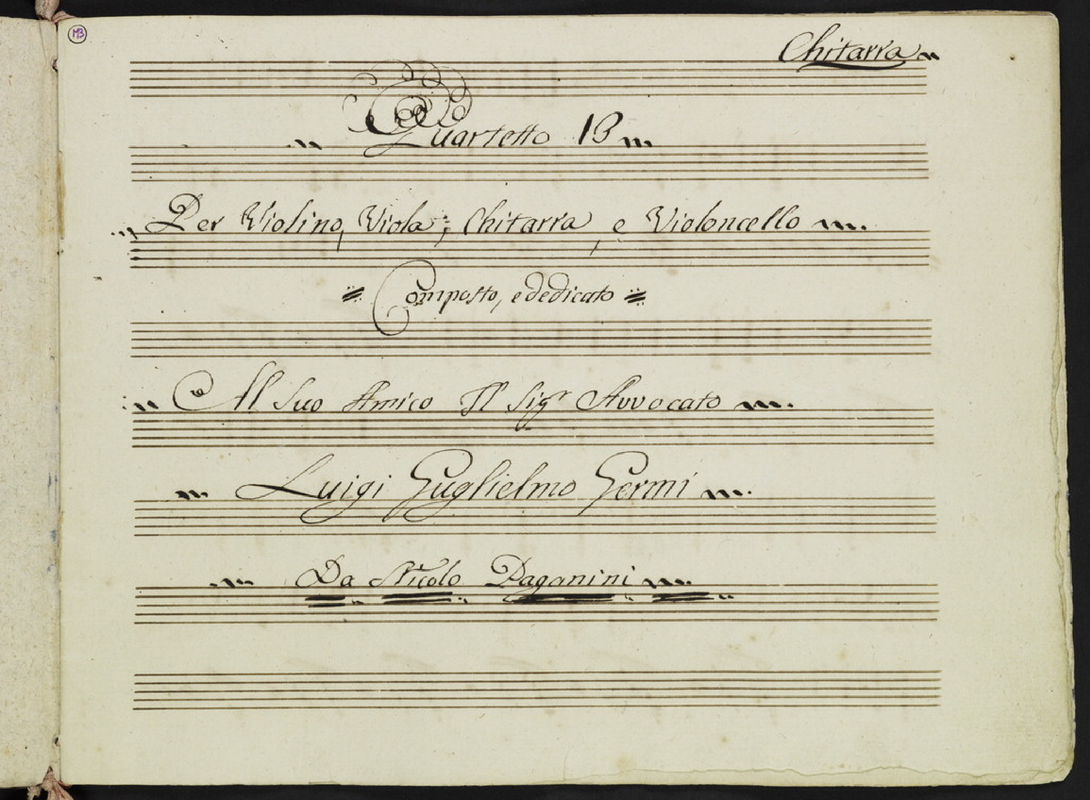 MB
Chitarra
Quartetto 13
Per Violino, Viola; Chitarra, e Violoncello
Composto, e dedicato
Al Suo Amico Il Sigr Avvocato
Luigi Guglielmo Germi
Da Nicolo Paganini